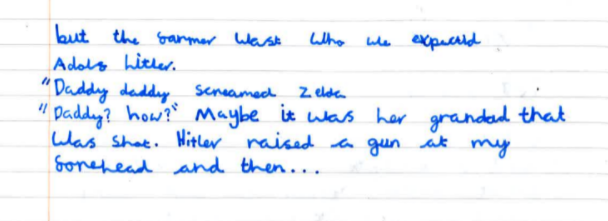 but the farmer wast who we expected
Adolf hitler.
"Daddy daddy screamed Zelda
"Daddy? how?" Maybe it was her grandad that
was shot. Hitler raised a gun at my
forehead and then...